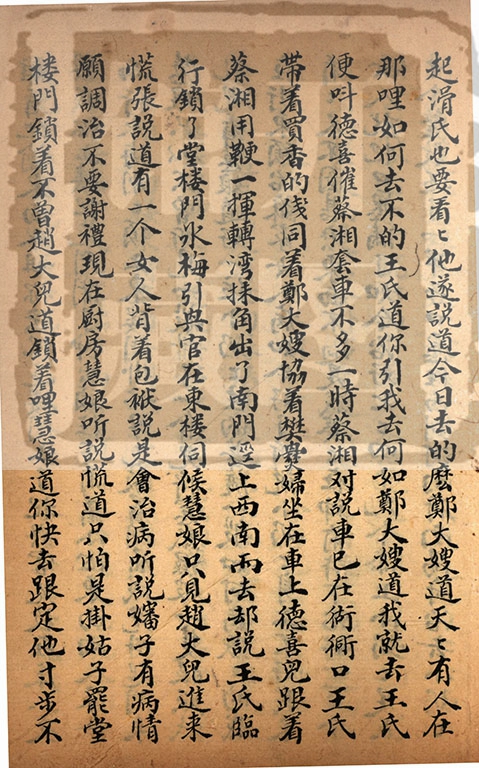 起滑氏也要看〻他遂説道今日去的麽鄭大嫂道天〻有人在
那哩如何去不的王氏道你引我去何如鄭大嫂道我就去王氏
便呌德喜催蔡湘套車不多一時蔡湘对説車已在衚衕口王氏
帶着買香的伐同着鄭大嫂協着樊爨婦坐在車上德喜兒跟着
蔡湘用鞭一揮轉湾抹角出了南門逕上西南而去却説王氏臨
行鎖了堂楼門氷梅引興官在東楼伺候慧娘只見趙大兒進来
慌張説道有一个女人背着包袱説是會治病听説嬸子有病情
願調治不要謝禮現在厨房慧娘听説慌道只怕是掛姑子罷堂
楼門鎖着不曽趙大兒道鎖着哩慧娘道你快去跟定他寸步不